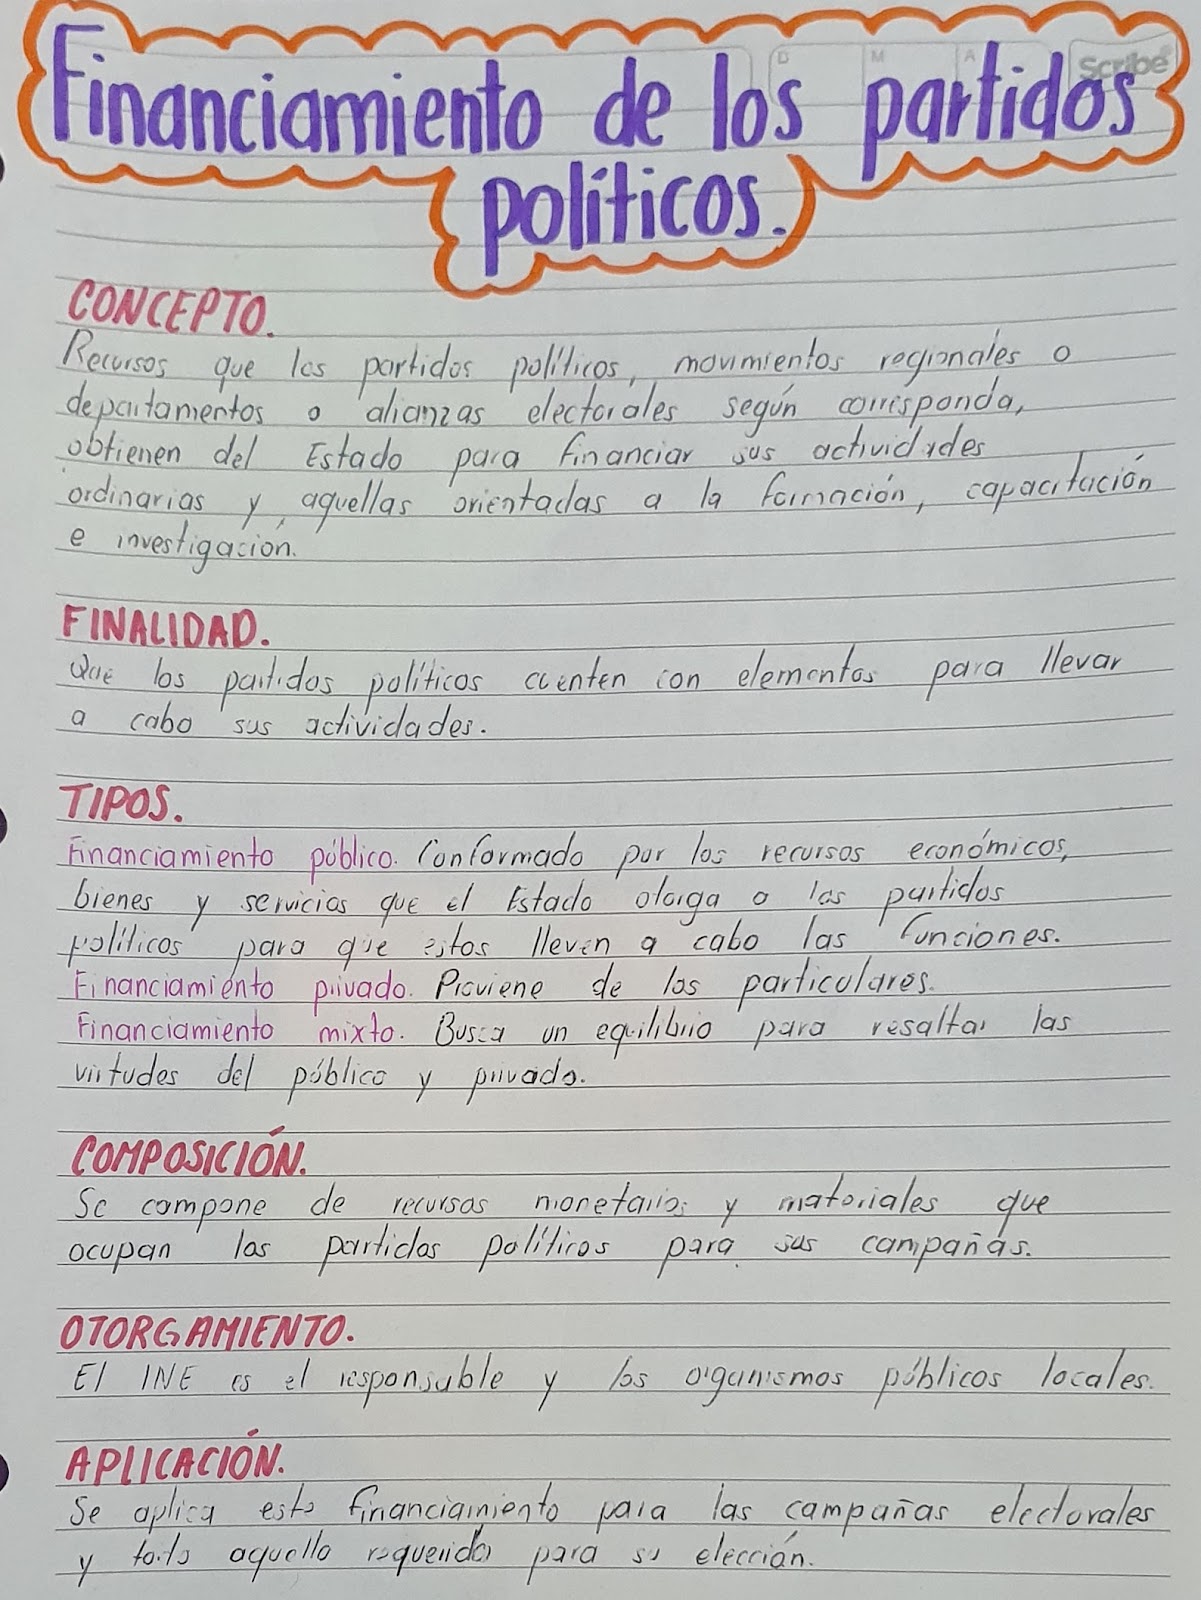 Financiamiento de los partidos
políticos.
D M A Scribe
CONCEPTO.
Recursos que los partidos políticos, movimientos regionales o
departamentos o alianzas electorales según corresponda,
obtienen del Estado para financiar sus actividades
ordinarias y aquellas orientadas a la formación, capacitación
e investigación.
FINALIDAD.
Que los partidos políticos cuenten con elementos para llevar
a cabo sus actividades.
TIPOS.
Financiamiento público. Conformado por los recursos económicos,
bienes y servicios que el Estado otorga a los partidos
políticos para que estos lleven a cabo las funciones.
Financiamiento privado. Proviene de los particulares.
Financiamiento mixto. Busca un equilibrio para resaltar las
virtudes del público y privado.
COMPOSICIÓN.
Se compone de recursos monetarios y materiales que
ocupan los partidos políticos para sus campañas.
OTORGAMIENTO.
El INE es el responsable y los organismos públicos locales.
APLICACIÓN.
Se aplica este financiamiento para las campañas electorales
y todo aquello requerido para su elección.